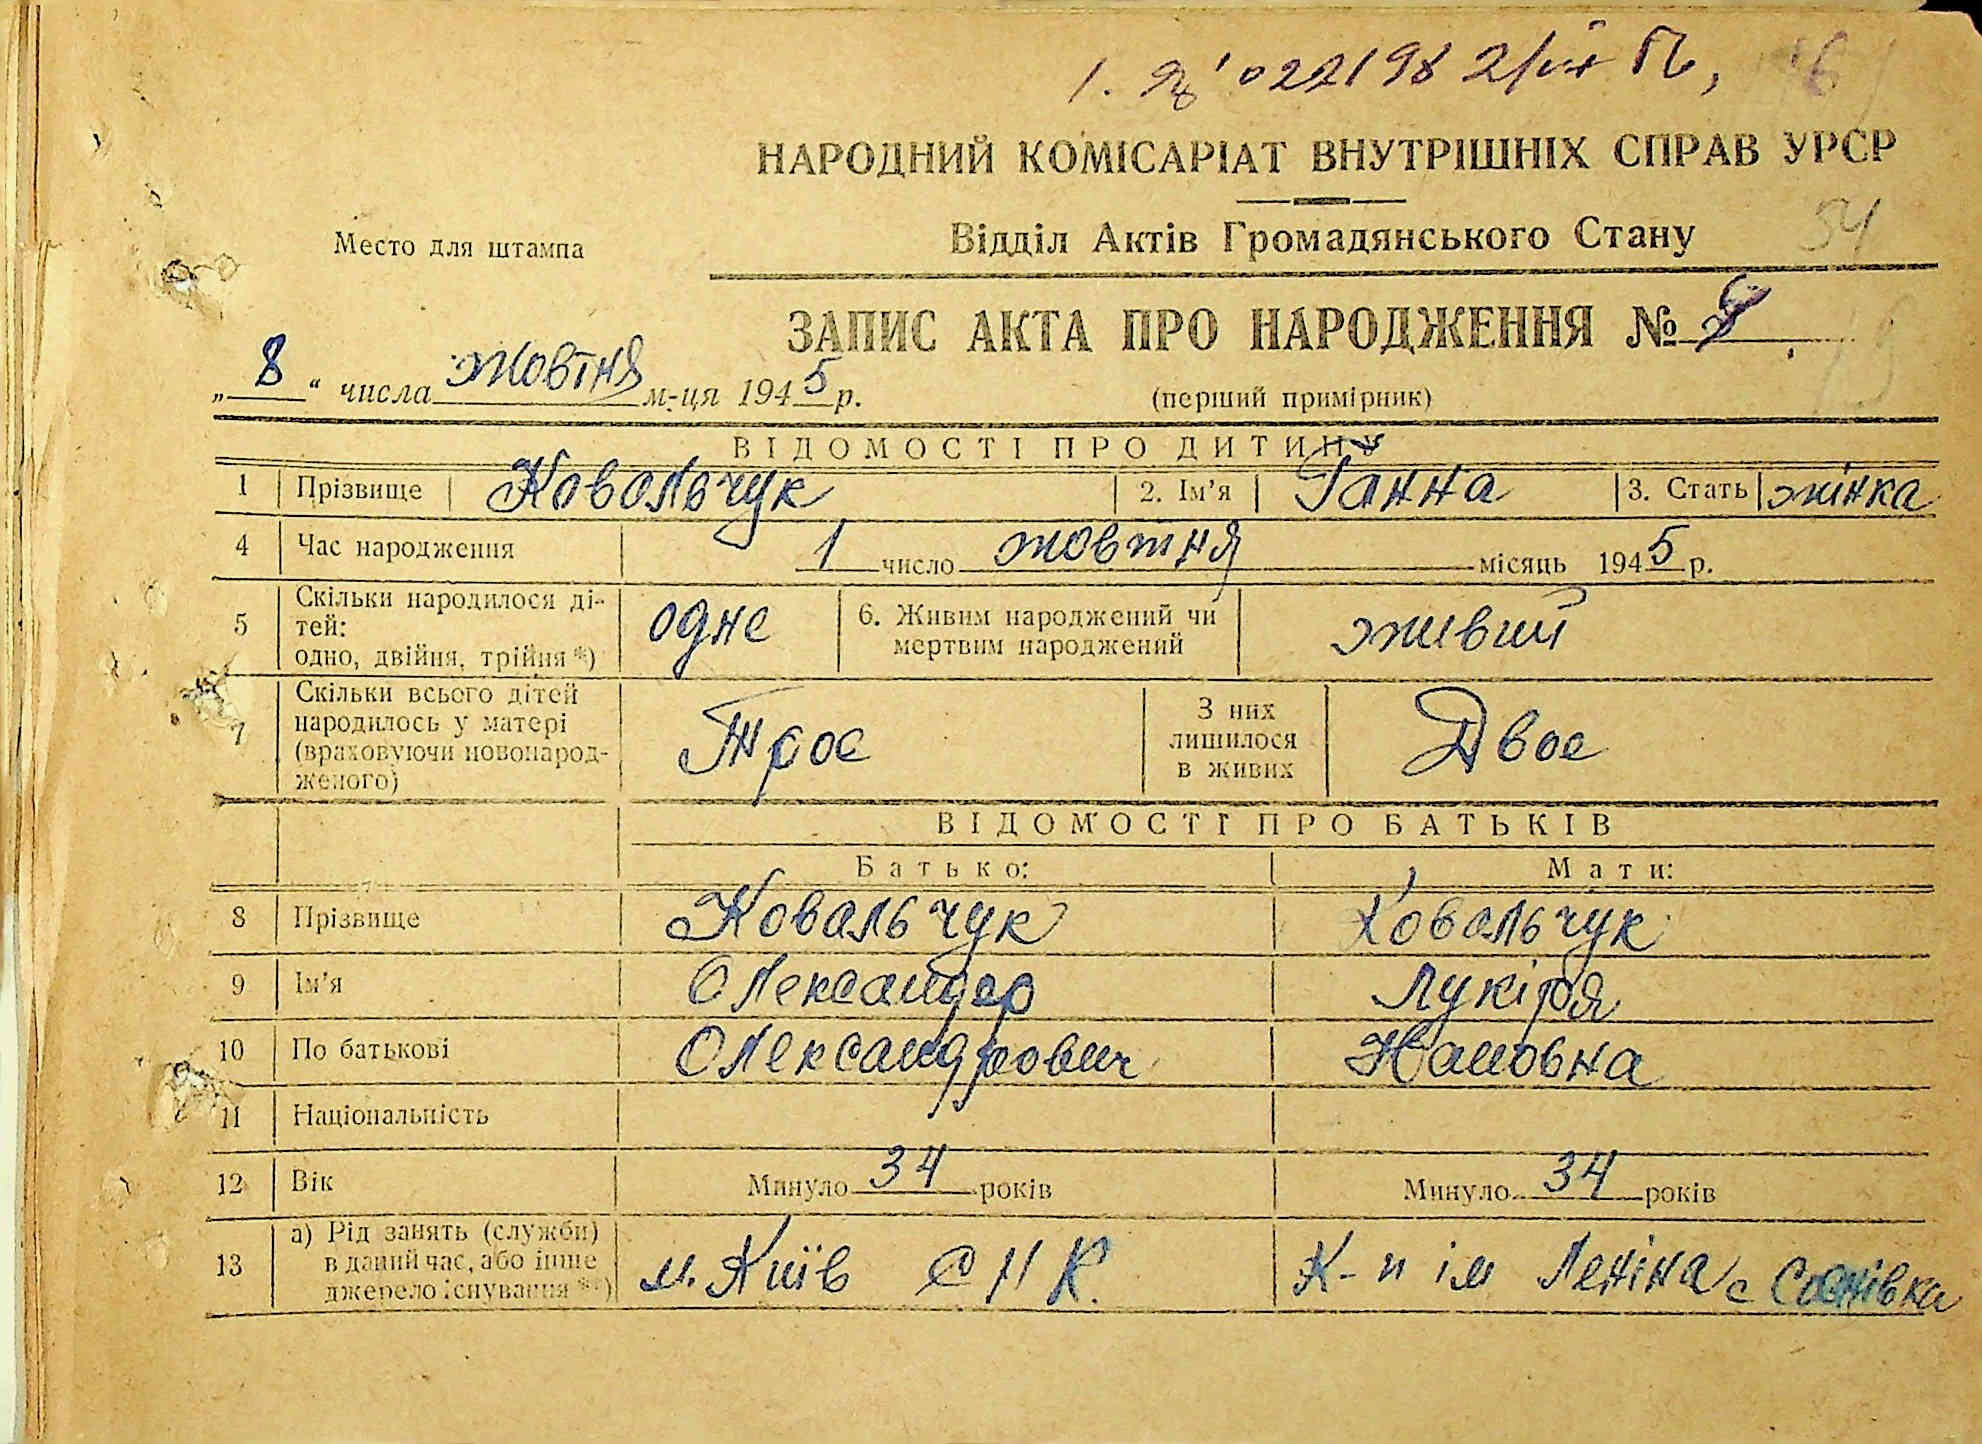 022198
НАРОДНИЙ КОМІСАРІАТ ВНУТРІШНІХ СПРАВ УРСР
54
Место для штампа
Відділ Актів Громадянського Стану
ЗАПИС АКТА ПРО НАРОДЖЕННЯ №
„ 8 “ числа жовтня м-ця 1945 р.
(перший примірник)
ВІДОМОСТІ ПРО ДИТИНУ
1 Прізвище Ковальчук 2. Ім'я Ганна 3. Стать жінка
4 Час народження 1 число жовтня місяць 1945 р.
5 Скільки народилося ді-
тей:
одно, двійня, трійня *) одне 6. Живим народжений чи
мертвим народжений живий
7 Скільки всього дітей
народилось у матері
(враховуючи новонарод-
женого) Троє З них
лишилося
в живих Двоє
ВІДОМОСТІ ПРО БАТЬКІВ
Батько: Мати:
8 Прізвище Ковальчук Ковальчук
9 Ім'я Олександер Лукіря
10 По батькові Олександрович
11 Національність
12 Вік Минуло 34 років Минуло 34 років
13 а) Рід занять (служби)
в даний час, або інше
джерело існування **) м. Київ СНК. К-п ім Леніна с